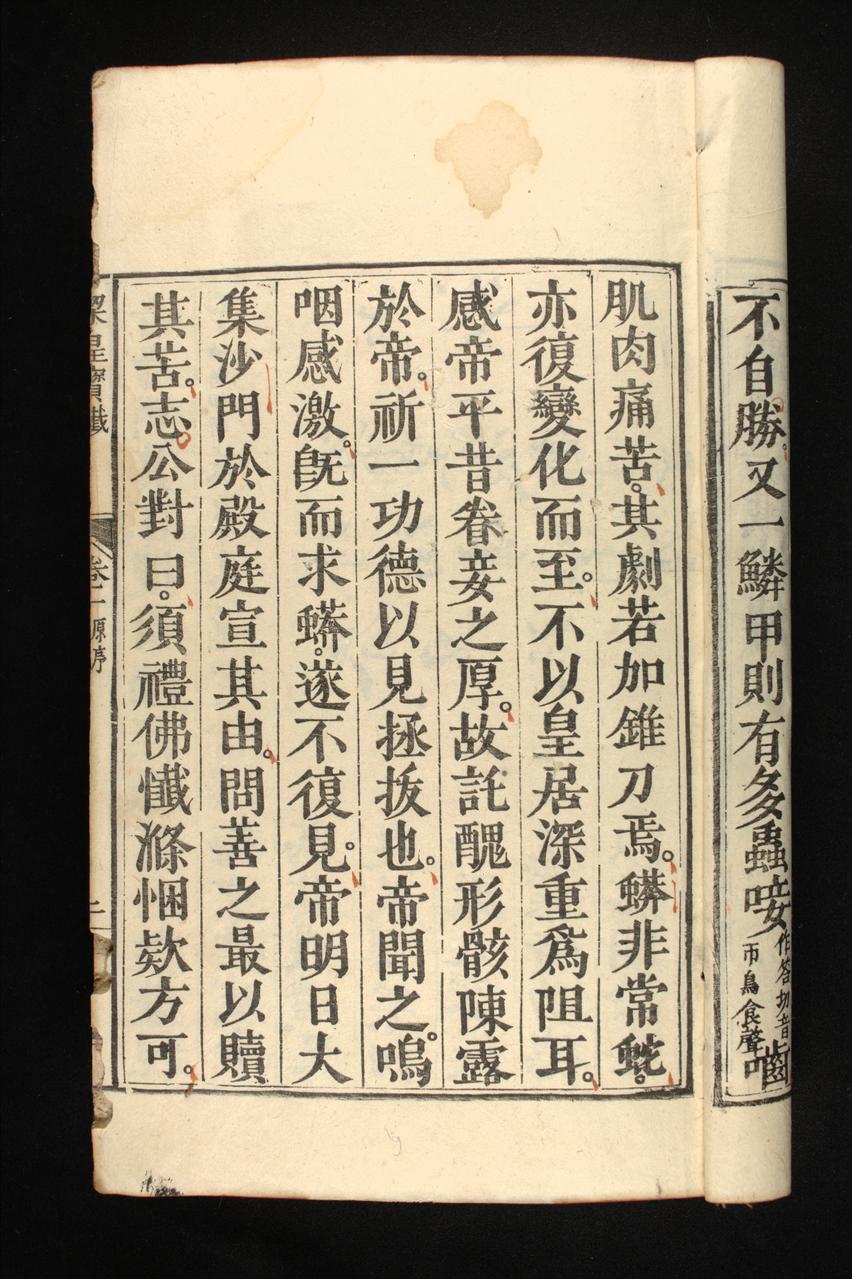 不自勝。又一鱗甲則有多蟲唼作答切音帀鳥食聲嚙
肌肉痛苦。其劇若加錐刀焉。蟒非常蛇。
亦復變化而至。不以皇居深重爲阻耳。
感帝平昔眷妾之厚。故託醜形骸陳露
於帝。祈一功德以見拯拔也。帝聞之。嗚
咽感激。旣而求蟒。遂不復見。帝明日大
集沙門於殿庭宣其由。問善之最以贖
其苦。志公對曰。須禮佛懺滌悃欵方可。
梁皇寶懺
卷一 原序
二